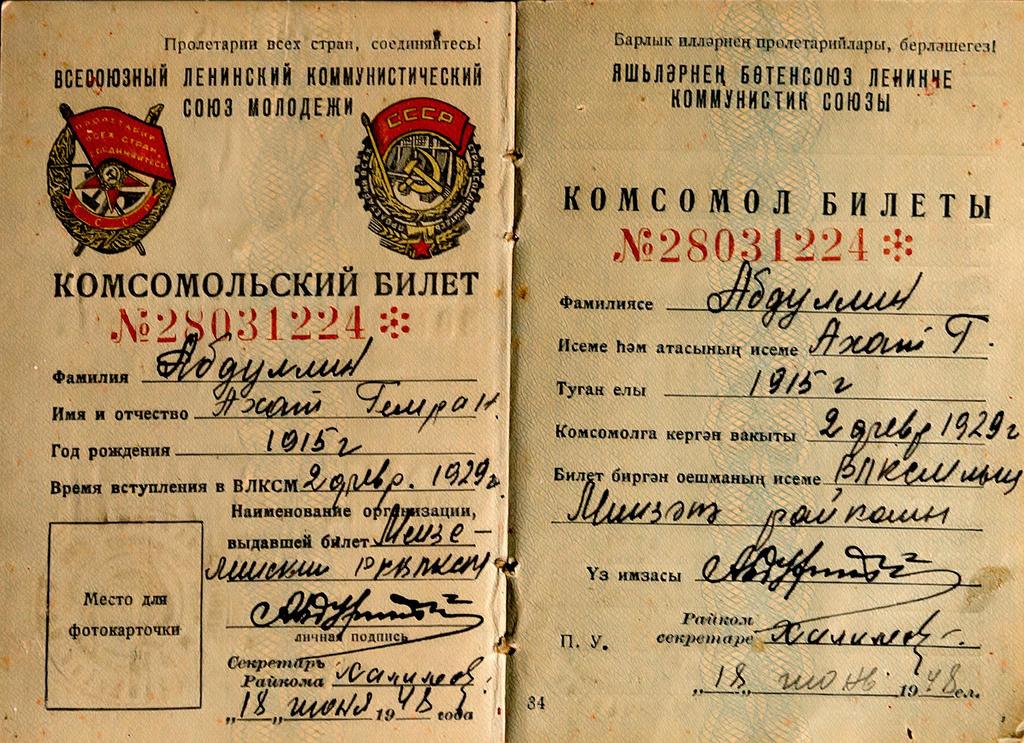 Пролетарии всех стран, соединяйтесь!
ВСЕСОЮЗНЫЙ ЛЕНИНСКИЙ КОММУНИСТИЧЕСКИЙ
СОЮЗ МОЛОДЕЖИ
ПРОЛЕТАРИИ
ВСЕХ СТРАН,
СОЕДИНЯЙТЕСЬ
СССР
СССР
КОМСОМОЛЬСКИЙ БИЛЕТ
№28031224
Фамилия Абдуллин
Имя и отчество Ахат
Год рождения 1915 г
Время вступления в ВЛКСМ 2 февр. 1929 г.
Наименование организации,
выдавшей билет Мензе-
линский РКВЛКСМ
Место для
фотокарточки
личная подпись
Секретарь
Райкома Халилов
„18„ июня 1948 года
Барлык илләрнең пролетарийлары, берләшегез!
ЯШЬЛӘРНЕҢ БӨТЕНСОЮЗ ЛЕНИНЧЕ
КОММУНИСТИК СОЮЗЫ
КОМСОМОЛ БИЛЕТЫ
№28031224
Фамилиясе Абдуллин
Исеме һәм атасының исеме Ахат Г.
Туган елы 1915 г
Комсомолга кергән вакыты 2 февр 1929 г
Билет биргән оешманың исеме ВЛКСМның
Минзәлә райкомы
Үз имзасы
П. У.
Райком
секретаре Халилов
„18„ июнь 1948 ел.
34